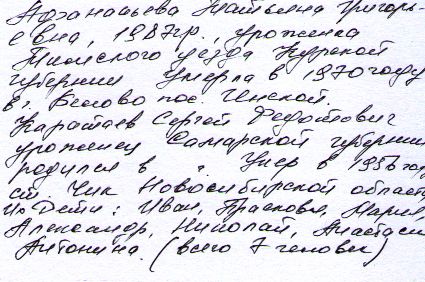 Афанасьева Татьяна Григорь-
евна, 1887гр., уроженка
уезда Курской
губернии Умерла в 1970 году
в г. Белово пос. Инской.
Каратаев Сергей Федотович
уроженец Самарской губернии
родился в г. Умер в год
ст. Чик Новосибирской област
Их Дети: Иван, Прасковья, Мария,
Александр, Николай, Анастаси
Антонина. (всего 7 человек)